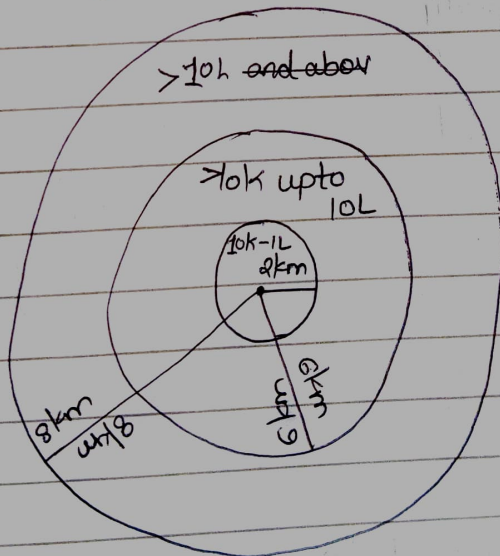 >10L and abov
>10K upto
10L
10K-1L
2km
6km
6km
8km
8km